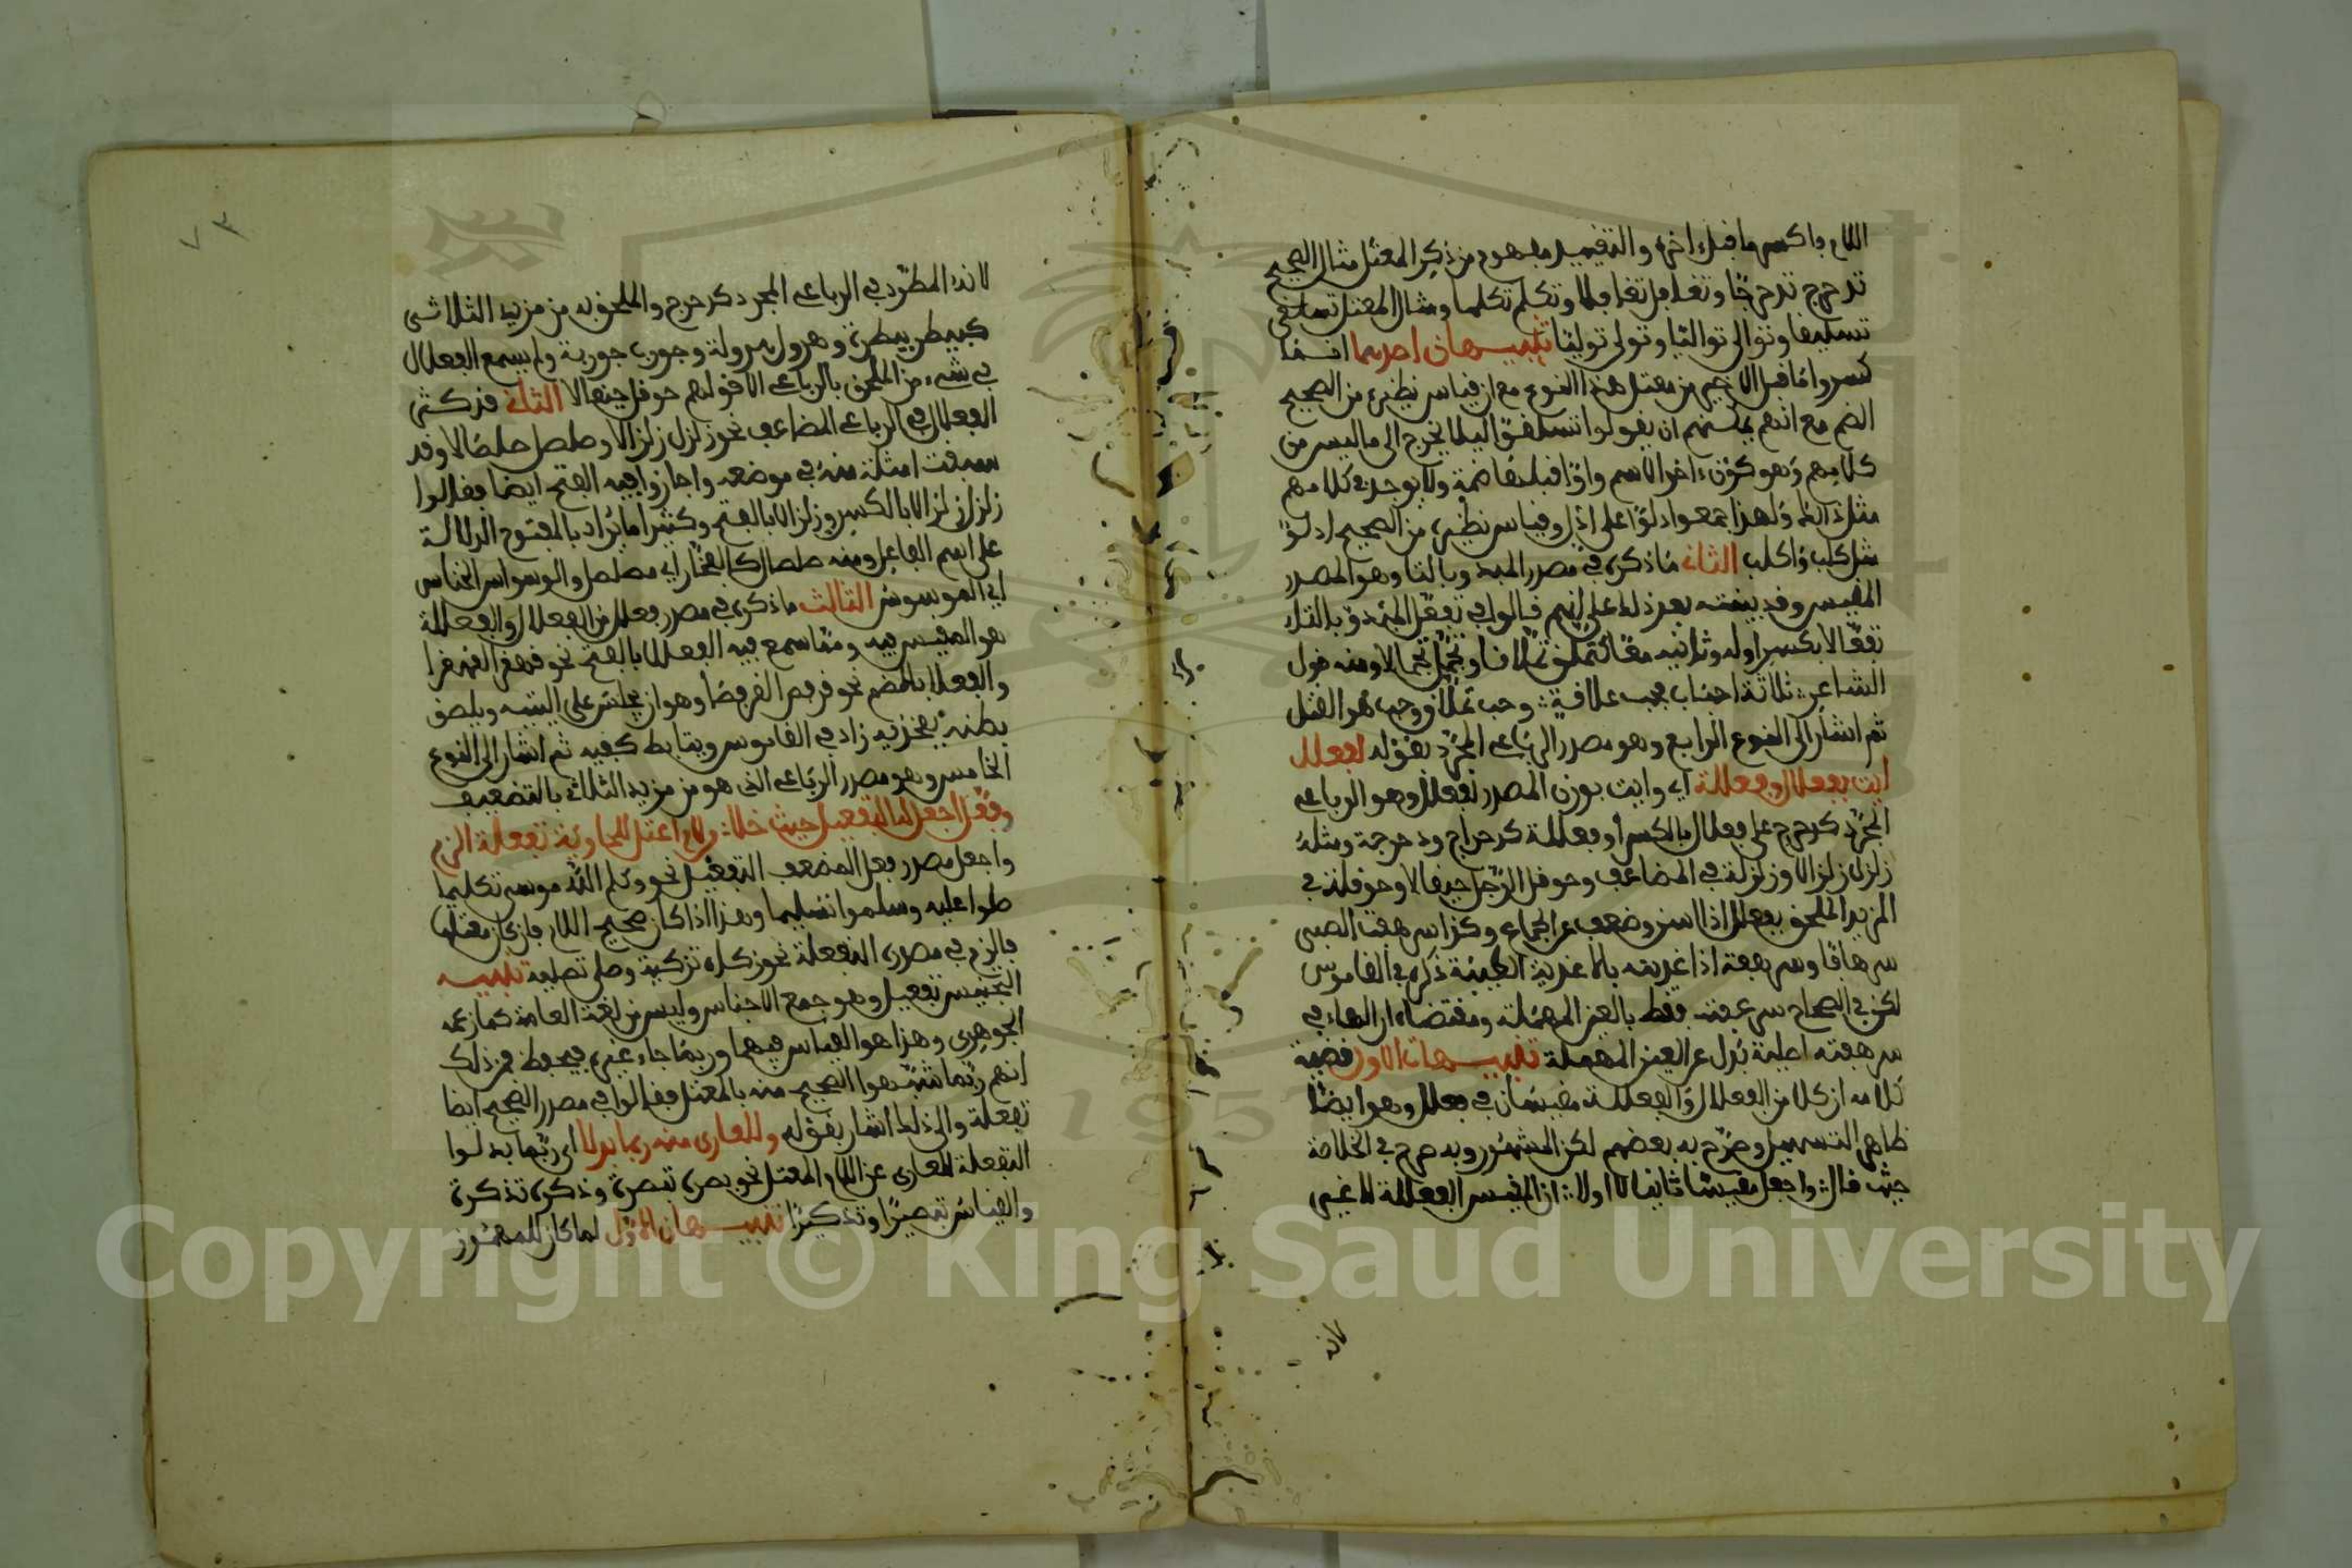 اللام فاكسر ما قبل اخره والتفصيل مفهوم من ذكر المعتل مثال الصحيح
تدحرج تدحرجا وتغافل تغافلا وتكلم تكلما ومثال المعتل تسلقى
تسلقيا وتوالى تواليا وتولى توليا تنبيهان احدهما انما
كسروا ما قبل الاخير من معتل هذا النوع مع ان قياس نظيره من الصحيح
الضم مع انهم يمكنهم ان يقولوا تسلقوا ليلا يخرج الى ما ليس من
كلامهم وهو كون ءاخر الاسم واوا قبلها ضمة ولا يوجد في كلامهم
مثل ذالك ولهذا جمعوا دلوا على ادل وقياس نظيره من الصحيح ادلو
مثل كلب واكلب الثاني ما ذكره في مصدر المبدوء بالتا وهو المصدر
المقيس وقد بينته بعد ذلك على انهم قالوا في تفعل المبدوة بالتاء
تفعالا بكسر اوله وثانيه معا كتملق تملاقا وتجمل تجمالا ومنه قول
الشاعر ثلاثة احباب فحب علاقة وحب تملاق وحب هو القتل
ثم اشار الى النوع الرابع وهو مصدر الرباعي المجرد بقوله لفعلل
ايت بفعلال وفعللة اي وايت بوزن المصدر لفعلل وهو الرباعي
المجرد كدحرج على فعلال بالكسر أو فعللة كدحراج ودحرجة ومثله
زلزل زلزالا وزلزلة في المضاعف وحوقل الرجل حيقالا وحوقلة في
المزيد الملحق بفعلل اذا اسن وضعف عن الجماع وكذا سرهف الصبي
سرهافا وسرهفة اذا غذيته بالاغذية الطيبة ذكره في القاموس
لكن في الصحاح سرعفته فقط بالعين المهملة ومقتضاه ان الهاء في
سرهفته اصلية بدل عن العين المهملة تنبيهات الاول قضية
كلامه ان كلا من الفعلال والفعللة مقيسان في فعلل وهو ايضا
ظاهر التسهيل وصرح به بعضهم لكن المشهور وبه صرح في الخلاصة
حيث قال واجعل مقيسا ثانيا لا اولا ان المقيس الفعللة لا غير
لانه
لانه المطرد في الرباعي المجرد كدحرج والملحق به من مزيد الثلاثي
كبيطر بيطرة وهرول هرولة وجورب جوربة ولم يسمع الفعلال
في شيء من الملحق بالرباعي الا قولهم حوقل حيقالا الثاني قد كثر
الفعلال في الرباعي المضاعف نحو زلزل زلزالا وصلصل صلصالا وقد
سبقت امثلة منه في موضعه واجازوا فيه الفتح ايضا فقالوا
زلزل زلزالا بالكسر وزلزالا بالفتح وكثيرا ما يراد بالمفتوح الدلالة
على اسم الفاعل ومنه صلصال كالفخار اي مصلصل والوسواس الخناس
اي الموسوس الثالث ما ذكره في مصدر فعلل من الفعلال والفعللة
هو المقيس فيه ومما سمع فيه الفعللا بالفتح نحو قهقر القهقرا
والفعللا بالضم نحو قرفص القرفصا وهو ان يجلس على اليتيه ويلصق
بطنه بفخذيه زاد في القاموس ويتابط كفيه ثم اشار الى النوع
الخامس وهو مصدر الرباعي الذي هو من مزيد الثلاثي بالتضعيف
وفعل اجعل له التفعيل حيث خلا من لام اعتل للحاويه تفعلة الزم
واجعل مصدر فعل المضعف التفعيل نحو وكلم الله موسى تكليما
صلوا عليه وسلموا تسليما وهذا اذا كان صحيح اللام فان كان معتلها
فالزم في مصدره التفعلة نحو زكاه تزكية وصلى تصلية تنبيه
التجنيس تفعيل وهو جمع الاجناس وليس من لغة العامة كما زعمه
الجوهري وهذا هو القياس فيهما وربما جاء غيره فيحفظ فمن ذلك
انهم ربما شبهوا الصحيح منه بالمعتل فقالوا في مصدر الصحيح ايضا
تفعلة والى ذلك اشار بقوله وللعارى منه ربما بدلا اي ربما بدلوا
التفعلة للعارى عن اللام المعتل نحو بصره تبصرة وذكره تذكرة
والقياس تبصيرا وتذكيرا تنبيهان الاول لما كان للمهموز
٧٣
Copyright © King Saud University
1957